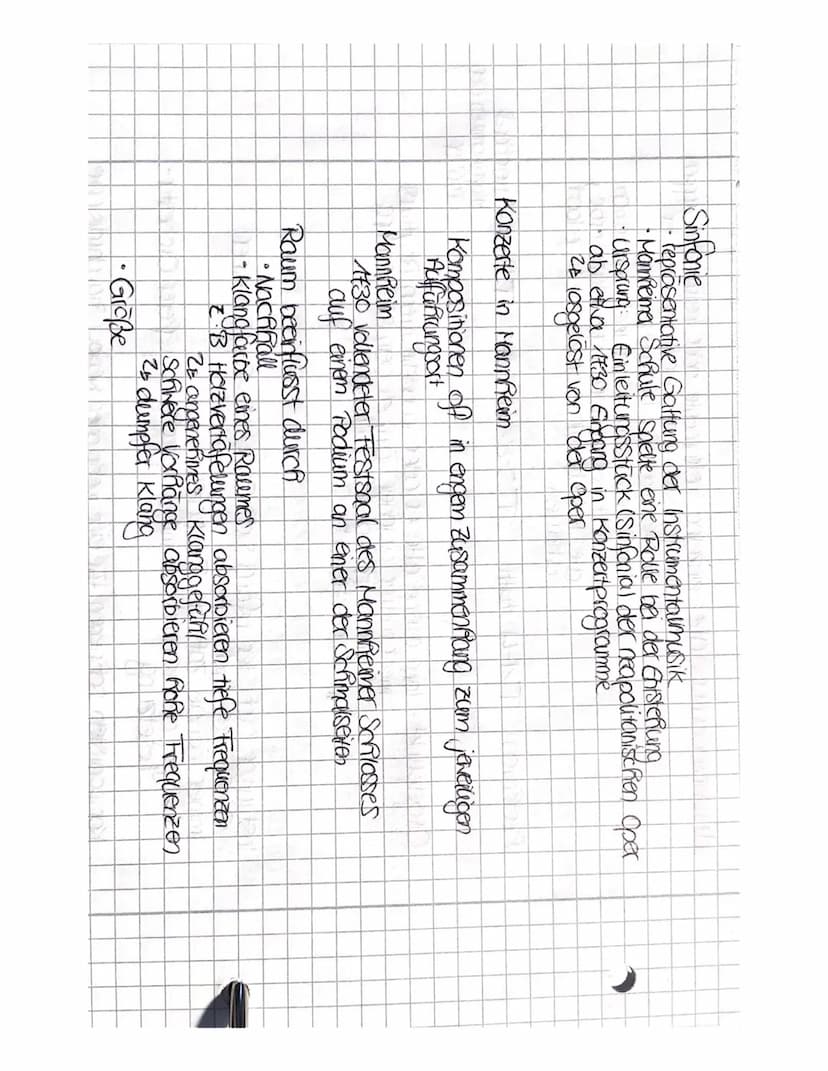 Sinfonie
· repräsentative Gattung der Instrumentalmusik
· Mannheimer Schule spielte eine Rolle bei der Entstehung
· Ursprung: Einleitungsstück (Sinfonia) der neapolitanischen Oper
· ab etwa 1730 Eingang in Konzertprogramme
↳ losgelöst von der Oper
Konzerte in Mannheim
Kompositionen oft in engem Zusammenhang zum jeweiligen
Aufführungsort
Mannheim
1730 vollendeter Festsaal des Mannheimer Schlosses
auf einem Podium an einer der Schmalseiten
Raum beeinflusst durch
· Nachhall
- Klangfarbe eines Raumes
z.B Holzvertäfelungen absorbieren tiefe Frequenzen
↳ angenehmes Klanggefühl
schwere Vorhänge absorbieren hohe Frequenzen
↳ dumpfer Klang
· Größe